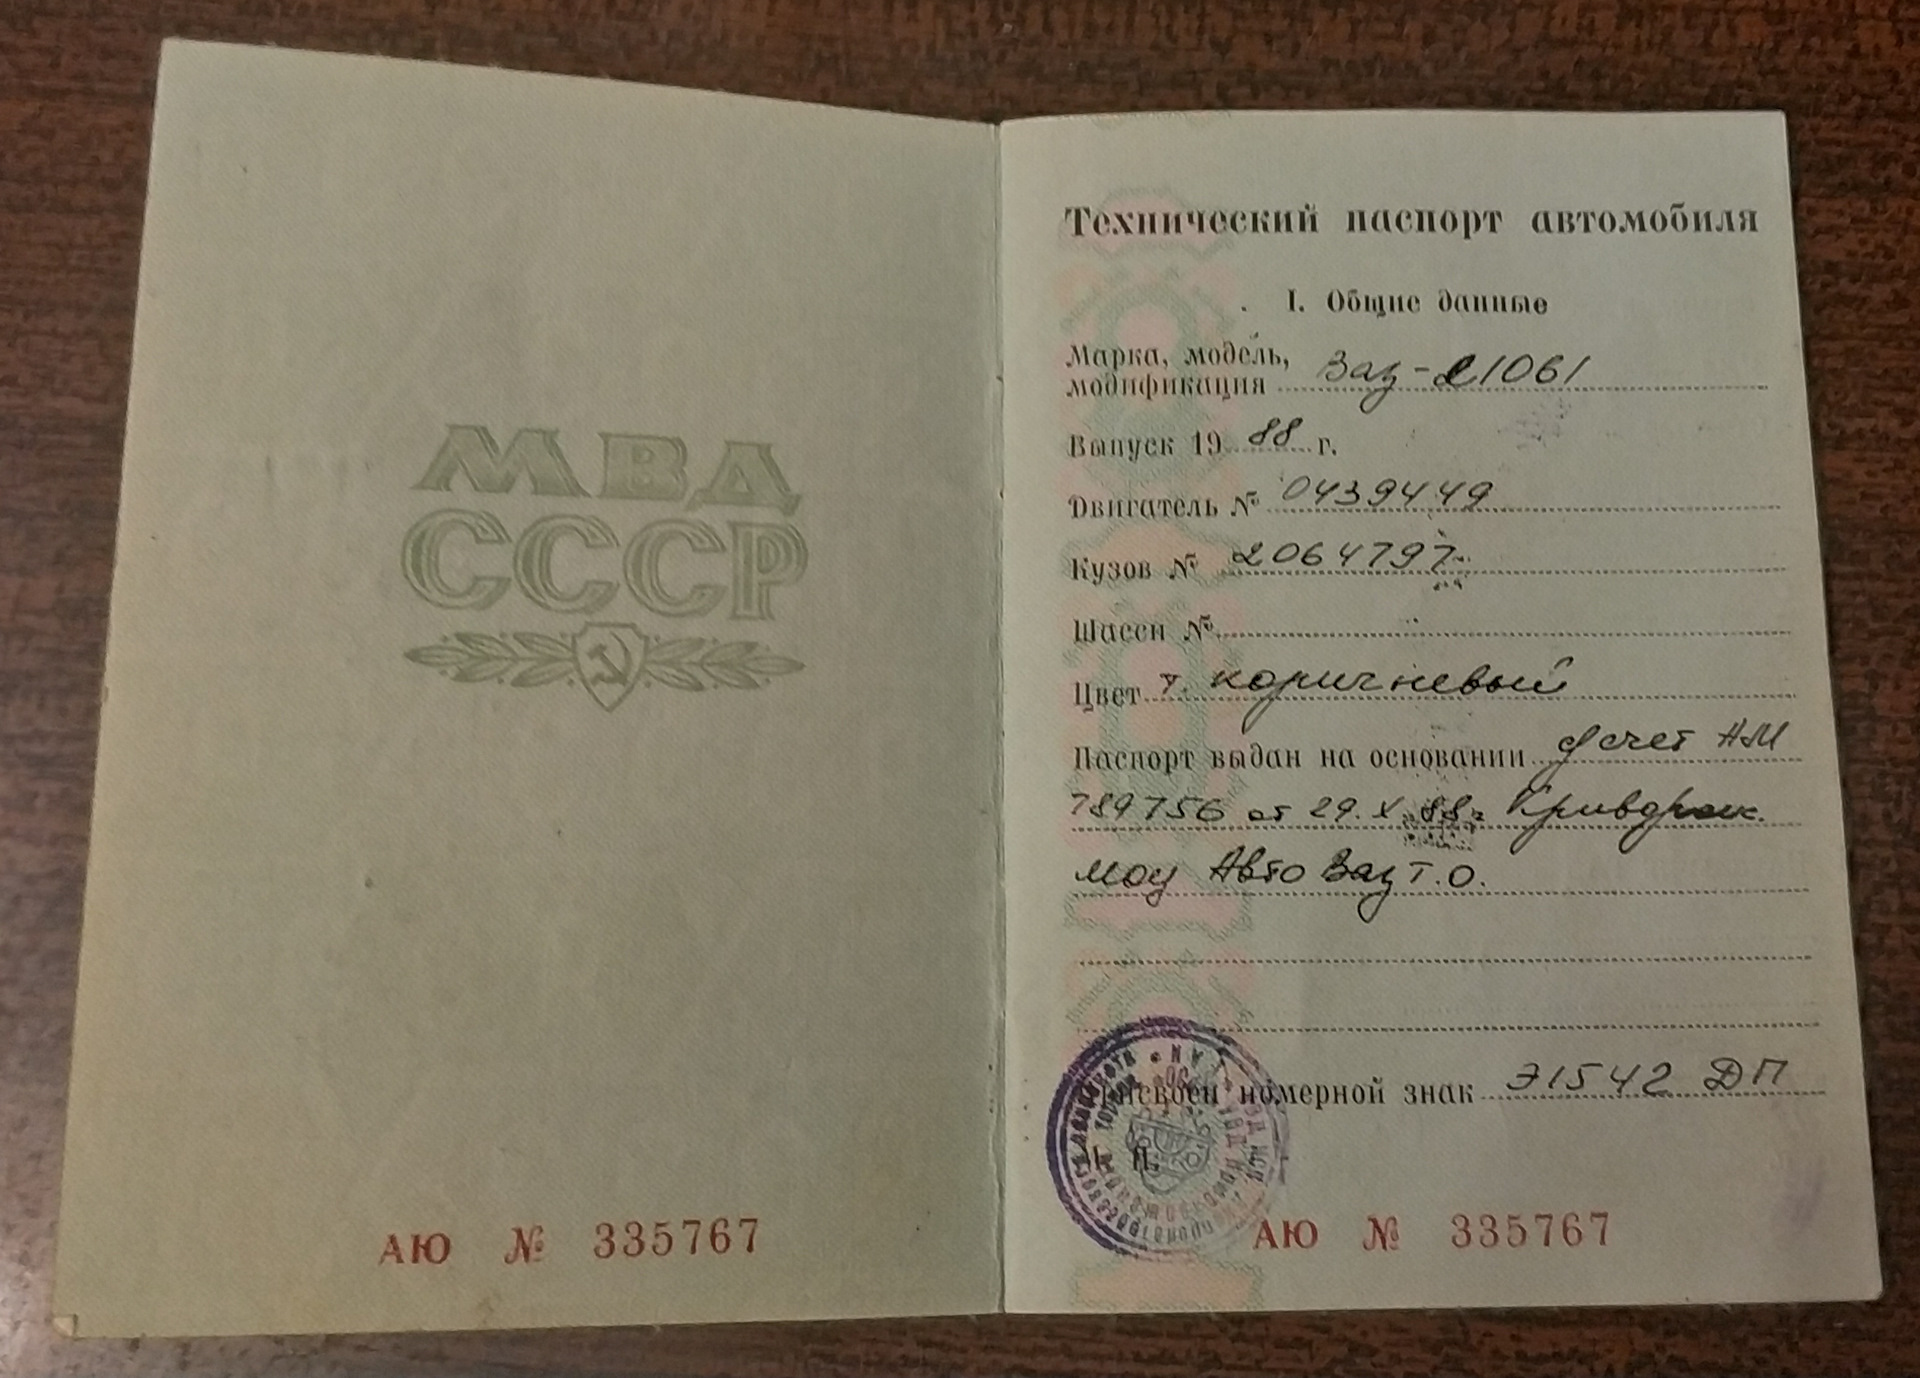 МВД
СССР
АЮ № 335767
Технический паспорт автомобиля
I. Общие данные
Марка, модель,
модификация Ваз-21061
Выпуск 19 88 г.
Двигатель № 0439449
Кузов № 2064797
Шасси №
Цвет т. коричневый
Паспорт выдан на основании счет АМ
789756 от 29.X.88г
Авто Ваз т.о.
Присвоен номерной знак Э1542 ДП
М. П.
АЮ № 335767